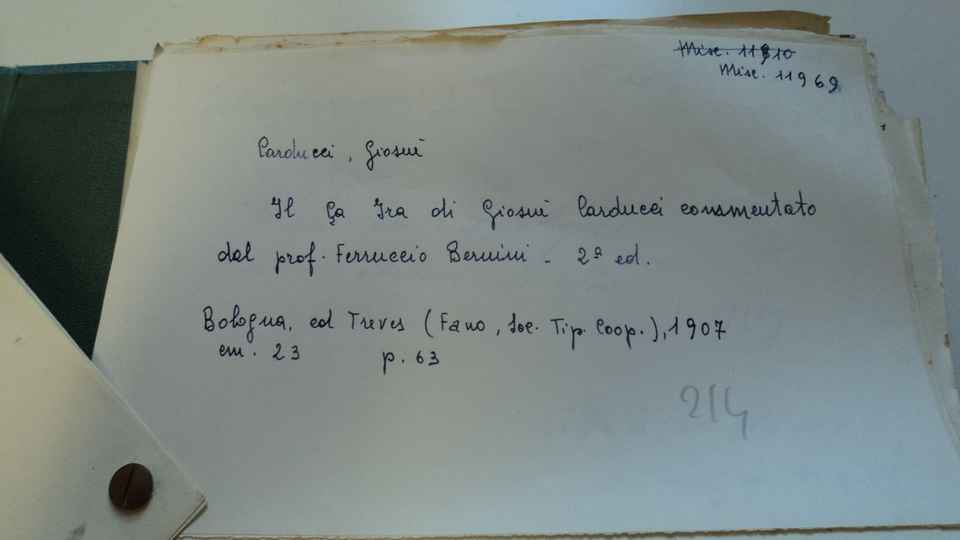 Misc. 11810
Misc. 11969
Carducci, Giosuè
Il Ça Ira di Giosuè Carducci commentato
dal prof. Ferruccio Bernini - 2ª ed.
Bologna, ed Treves (Fano, Soc. Tip. Coop.), 1907
cm. 23 p. 63
214